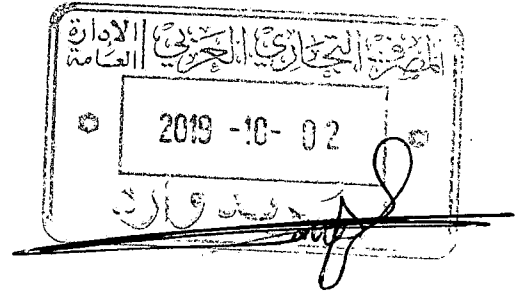 المصرف التجاري العربي الادارة العامة
2019 -10- 02
بريد وارد